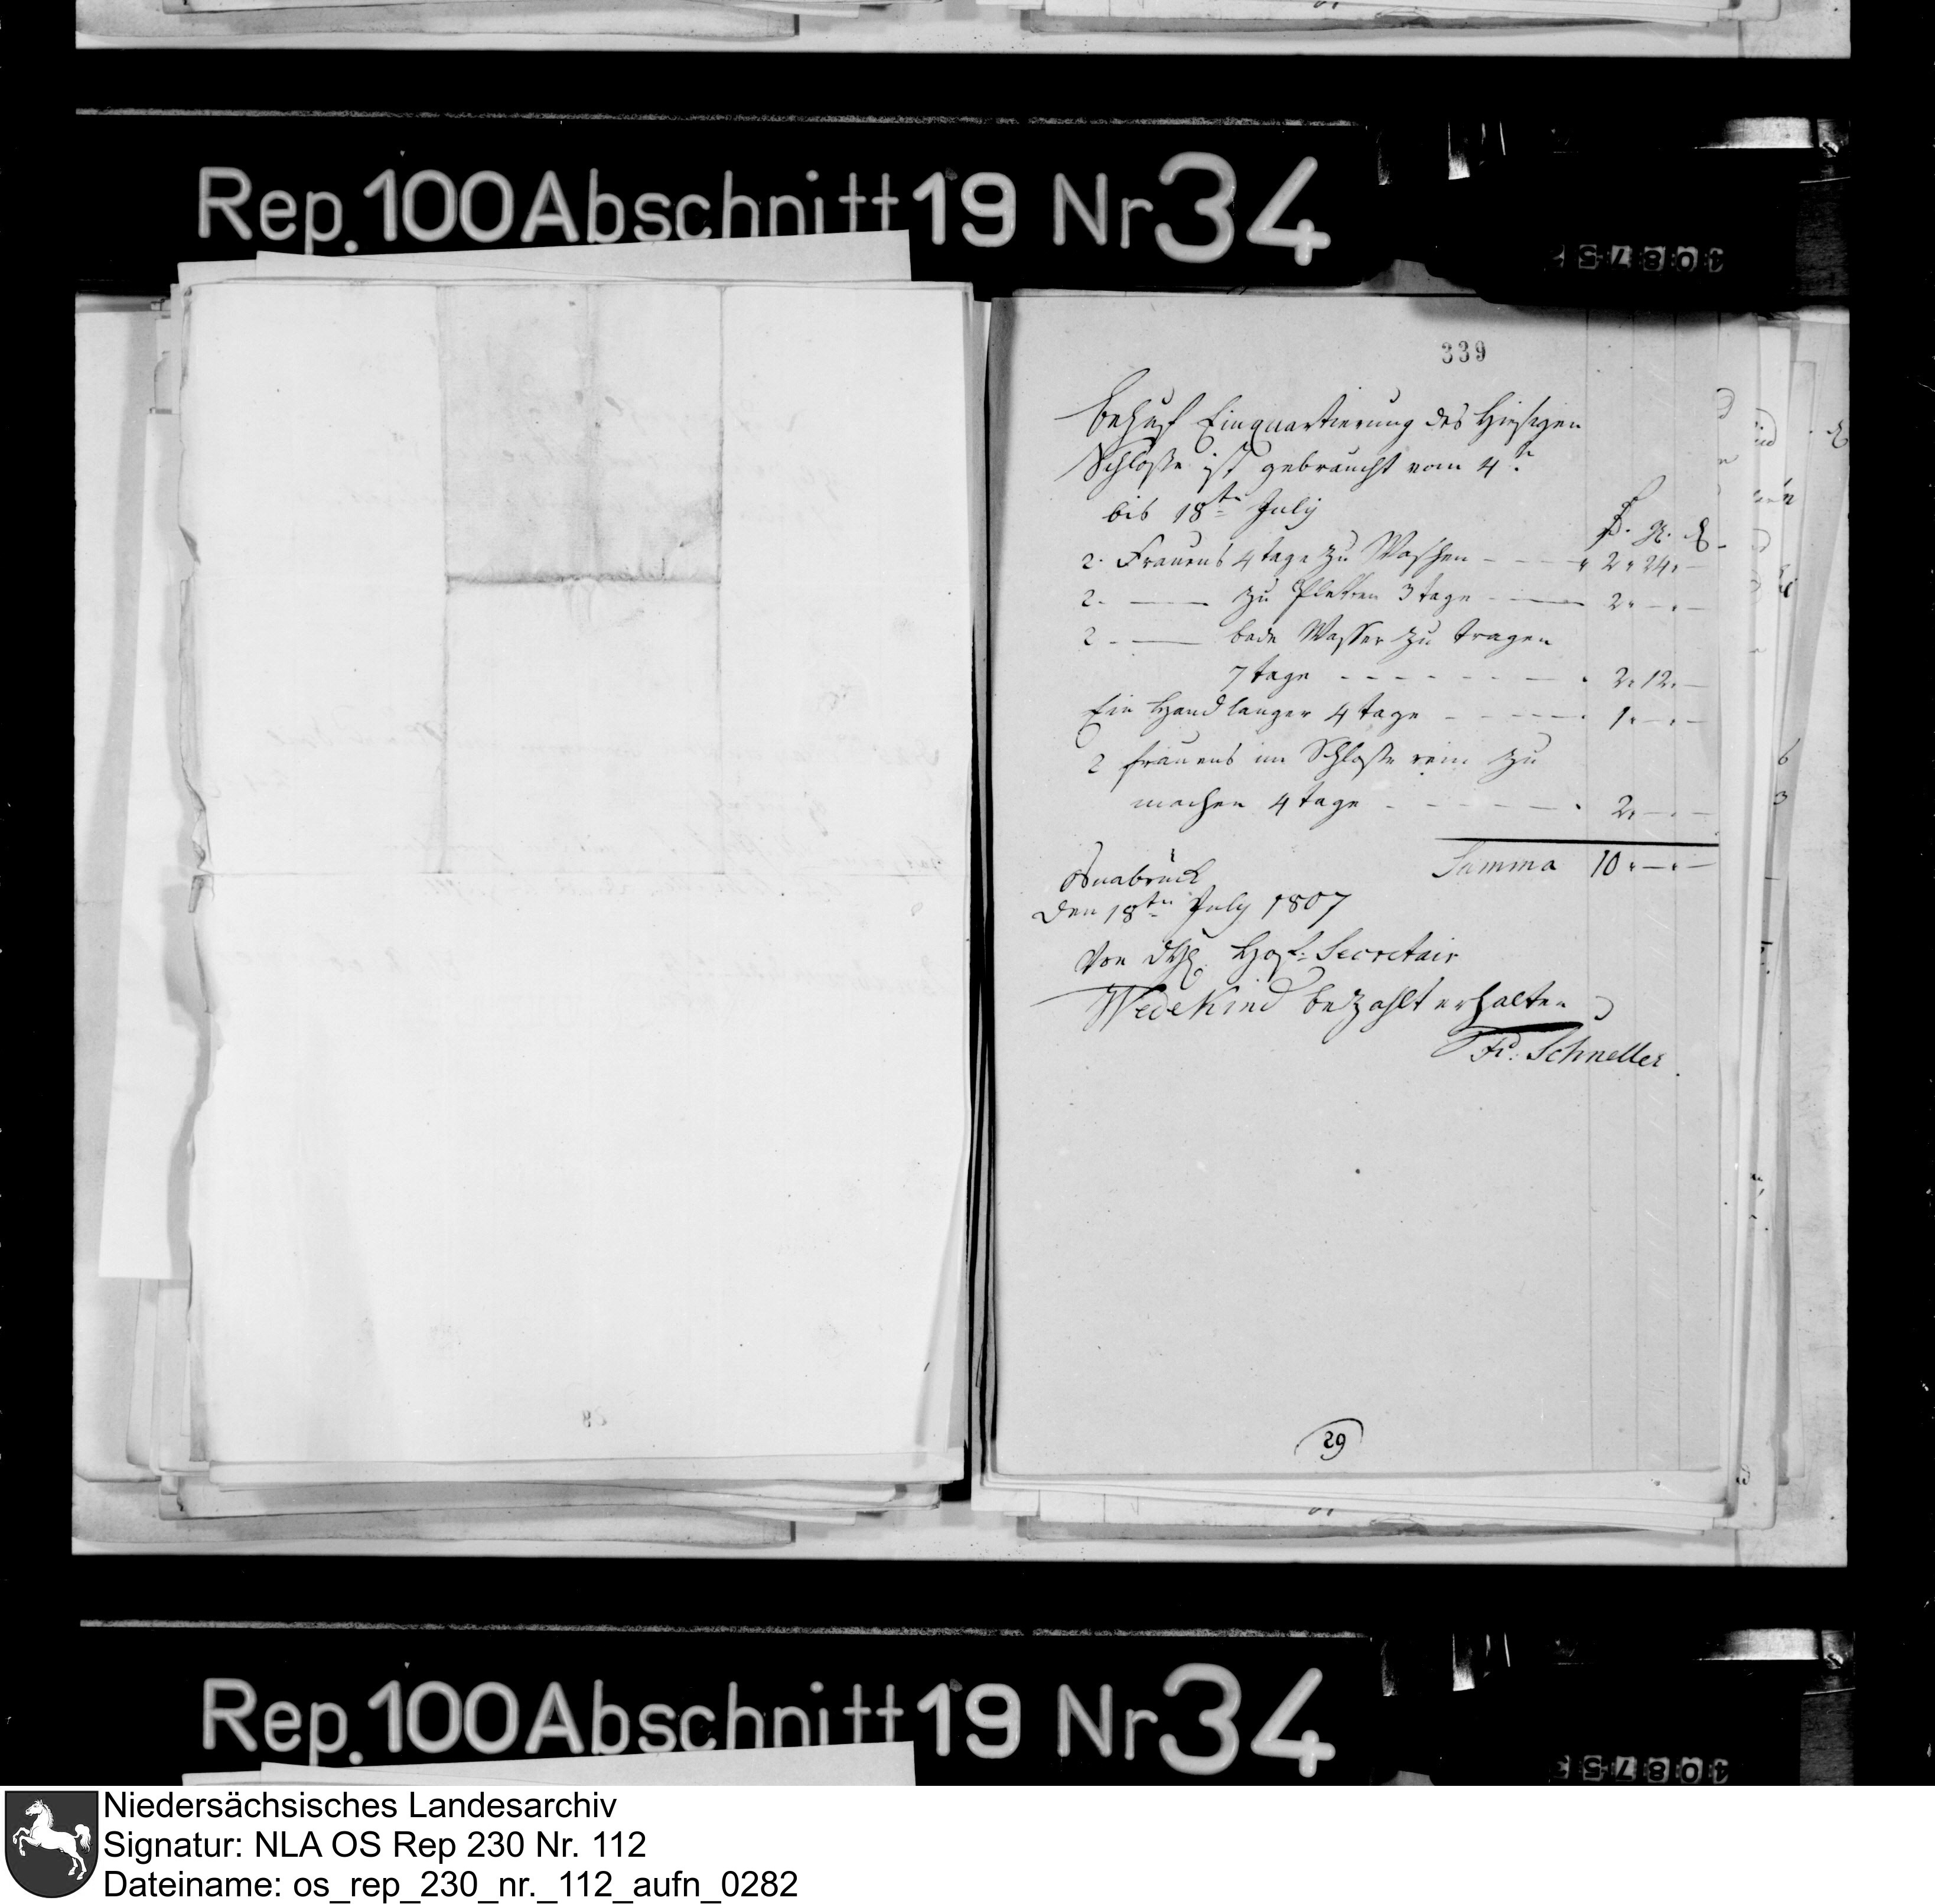 Rep. 100 Abschnitt 19 Nr 34
339
Behuf Einquartierung des Hiesigen
Schloße ist gebraucht vom 4t
bis 18ten July
2. Frauens 4 tage zu Waschen - - - 2 " 24 " -
2. —— zu Pletten 3 tage - —— 2 " - " -
2. —— bade Wasser zu tragen
7 tage - - - - - - - 2 " 12 " -
Ein Handlanger 4 tage - - - - 1 " - " -
2 frauens im Schloße rein zu
machen 4 tage - - - - - 2 " - " -
Summa 10 " - " -
Osnabrück
den 18ten July 1807
Von Hof: Secretair
Wedekind bezahlt erhalten
Fr: Schneller
29
Rep. 100 Abschnitt 19 Nr 34
Niedersächsisches Landesarchiv
Signatur: NLA OS Rep 230 Nr. 112
Dateiname: os_rep_230_nr._112_aufn_0282